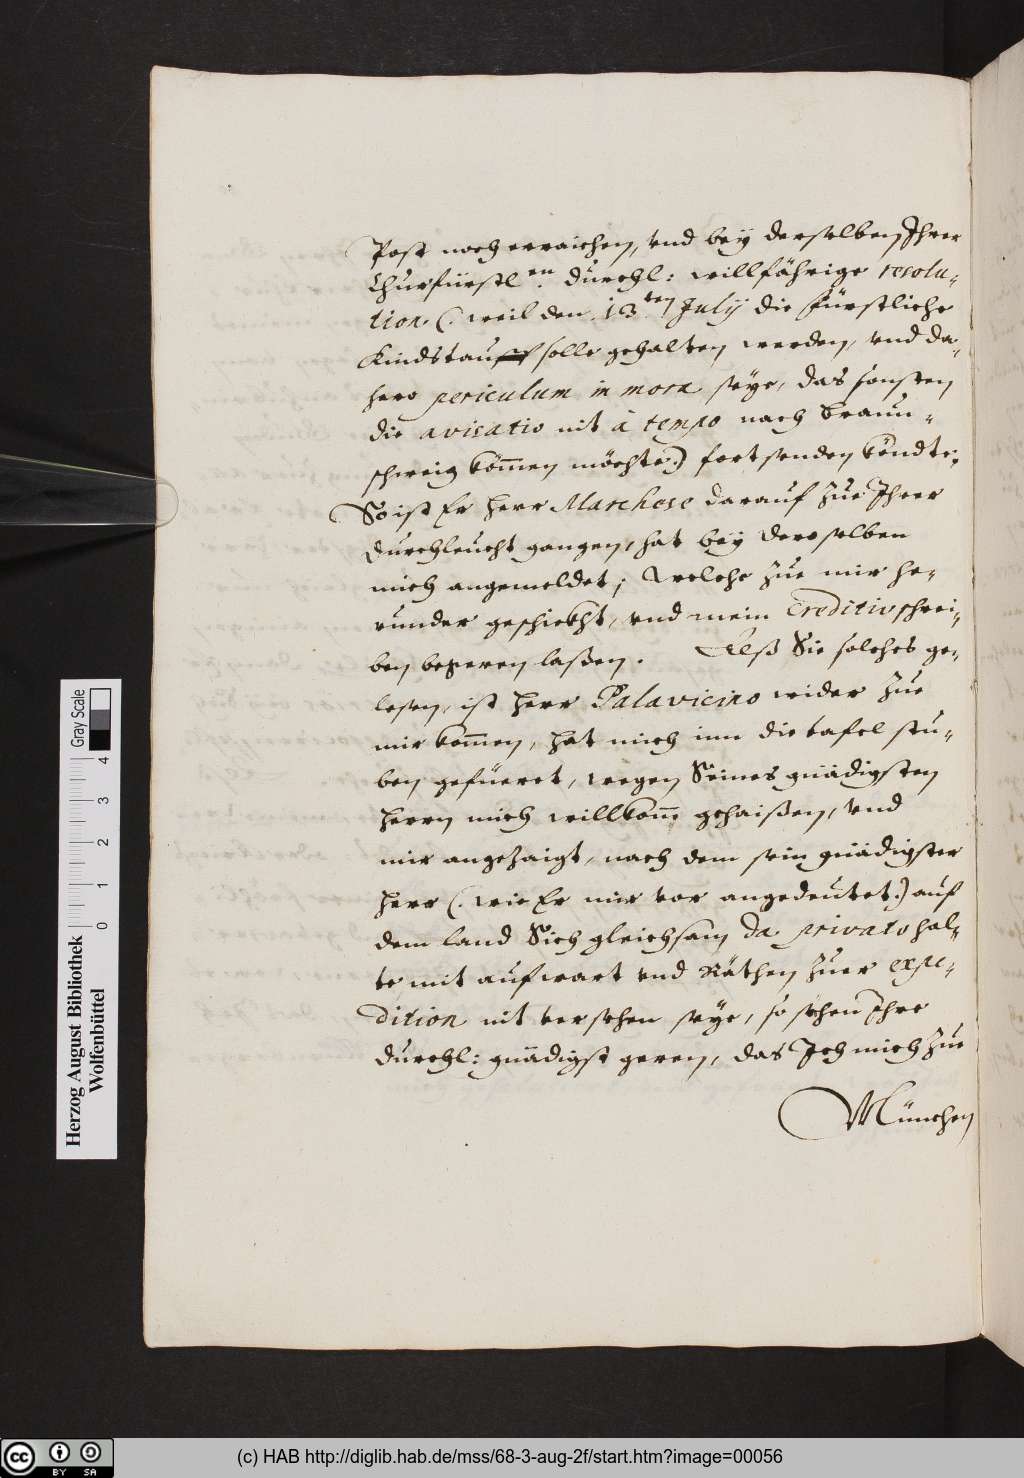 Post noch erraichen, vnd bey derselben Ihrer
Churfürstl.en durchl: willfährige resolu-
tion (: weil den 13.ten July die fürstliche
Kindstauff solle gehalten werden, vnd da-
hero periculum in mora seye, das sonsten
die avisatio nit à tempo nach Braun-
schweig kommen möchte:) fortsenden köndte;
So ist Er Herr Marchese darauf zue Ihrer
Durchleucht gangen, hat bey deroselben
mich angemeldet; welche zue mir he-
runder geschickht, vnd mein Creditivschrei-
ben begeren laßen. Alß Sie solches ge-
lesen, ist Herr Palavicino wider zue
mir kommen, hat mich inn die tafel stu-
ben gefüeret, wegen Seines gnädigsten
Herrn mich willkomm gehaißen, vnd
mir angezaigt, nach dem sein gnädigster
Herr (: wie Er mir vor angedeutet:) auf
dem land Sich gleichsam da privato hal-
te mit aufwart vnd Räthen zuer expe-
dition nit versehen seye, so sehen Ihre
Durchl: gnädigst geren, das Ich mich zue
München
Herzog August Bibliothek
Wolfenbüttel
Gray Scale
0 1 2 3 4
CC BY SA
(c) HAB http://diglib.hab.de/mss/68-3-aug-2f/start.htm?image=00056